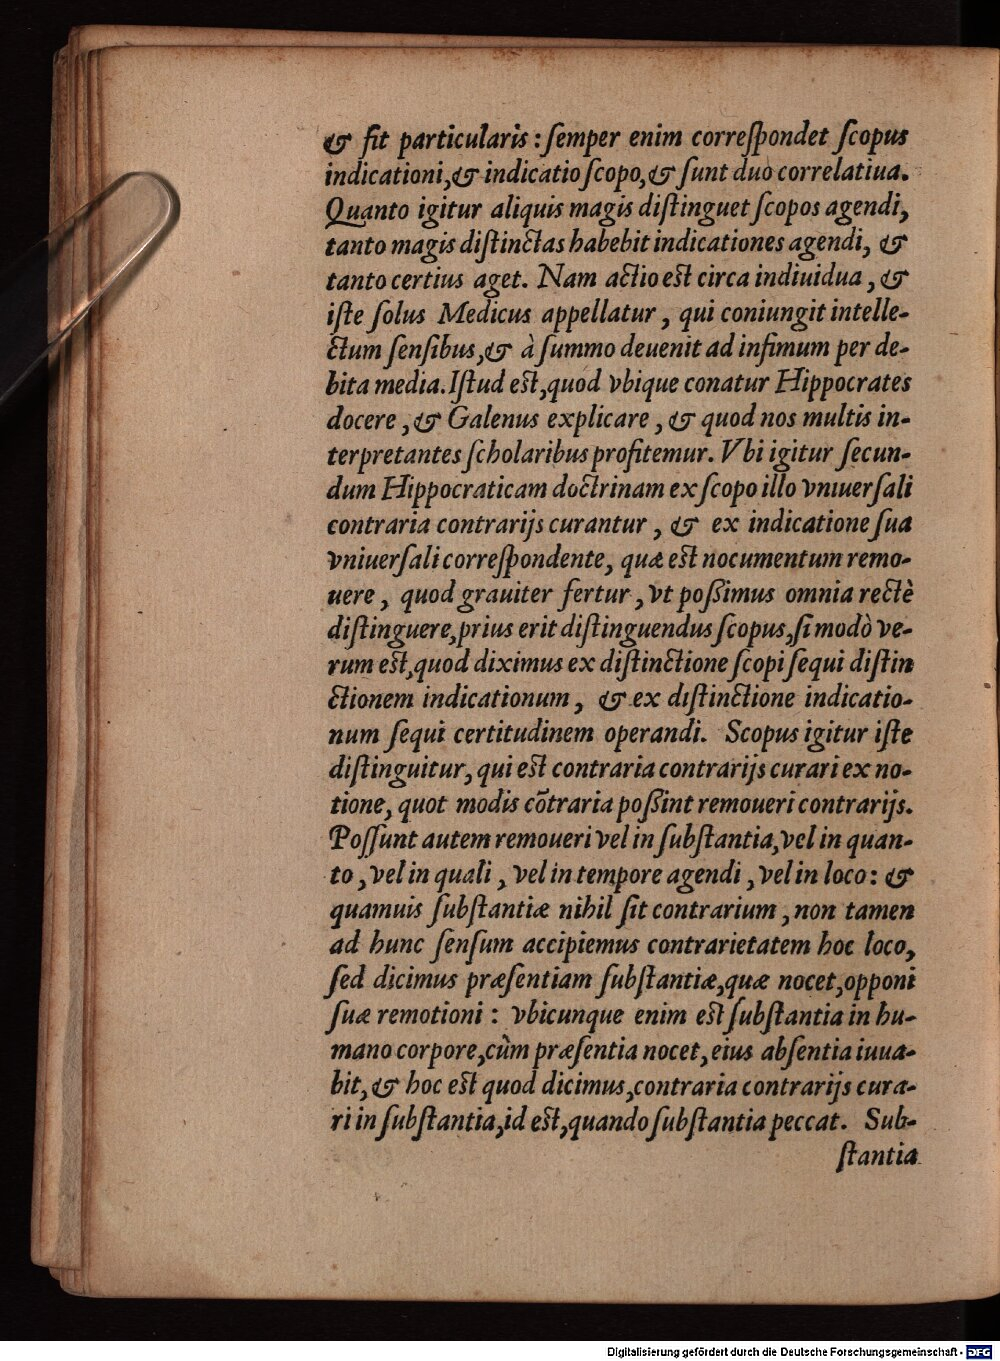 & fit particularis : ſemper enim correſpondet ſcopus
indicationi,& indicatio ſcopo,& ſunt duo correlatiua.
Quanto igitur aliquis magis diſtinguet ſcopos agendi,
tanto magis diſtinctas habebit indicationes agendi, &
tanto certius aget. Nam actio est circa indiuidua , &
iſte ſolus Medicus appellatur , qui coniungit intelle-
ctum ſenſibus,& à ſummo deuenit ad infimum per de-
bita media. Iſtud est,quod vbique conatur Hippocrates
docere ,& Galenus explicare , & quod nos multis in-
terpretantes ſcholaribus profitemur. Vbi igitur ſecun-
dum Hippocraticam doctrinam ex ſcopo illo vniuerſali
contraria contrarijs curantur , & ex indicatione ſua
vniuerſali correſpondente, quæ est nocumentum remo-
uere , quod grauiter fertur , vt poßimus omnia rectè
diſtinguere,prius erit diſtinguendus ſcopus,ſi modò ve-
rum est,quod diximus ex diſtinctione ſcopi ſequi diſtin
ctionem indicationum , & ex diſtinctione indicatio-
num ſequi certitudinem operandi. Scopus igitur iſte
diſtinguitur, qui est contraria contrarijs curari ex no-
tione, quot modis cõtraria poßint remoueri contrarijs.
Poſſunt autem remoueri vel in ſubſtantia,vel in quan-
to , vel in quali , vel in tempore agendi , vel in loco : &
quamuis ſubſtantiæ nihil ſit contrarium , non tamen
ad hunc ſenſum accipiemus contrarietatem hoc loco,
ſed dicimus præſentiam ſubſtantiæ,quæ nocet,opponi
ſuæ remotioni : vbicunque enim est ſubſtantia in hu-
mano corpore,cùm præſentia nocet, eius abſentia iuua-
bit,& hoc est quod dicimus,contraria contrarijs cura-
ri in ſubſtantia,id est,quando ſubſtantia peccat. Sub-
ſtantia
Digitalisierung gefördert durch die Deutsche Forschungsgemeinschaft - DFG